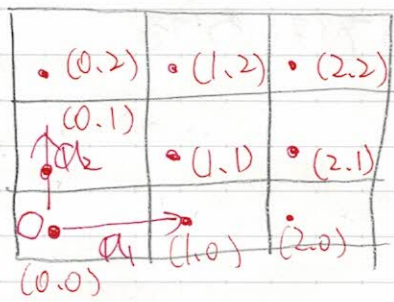 (0.2) (1,2) (2.2)
(0.1)
a₂
(1,1) (2.1)
O
a₁
(1,0) (2.0)
(0.0)